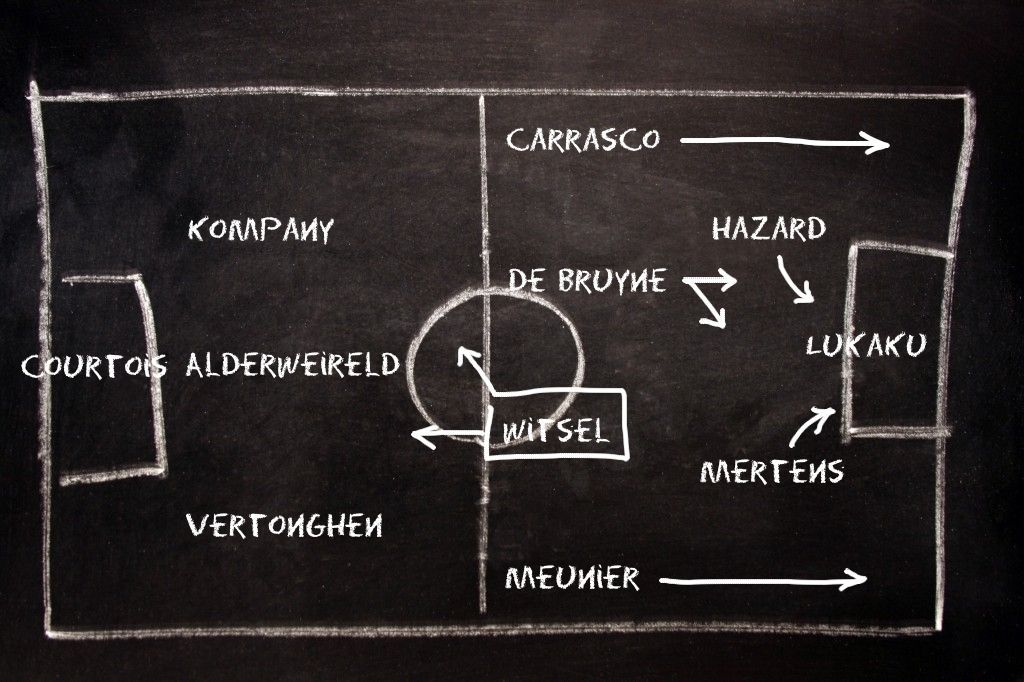 CARRASCO
KOMPANY
HAZARD
DE BRUYNE
COURTOIS
ALDERWEIRELD
LUKAKU
WITSEL
MERTENS
VERTONGHEN
MEUNIER